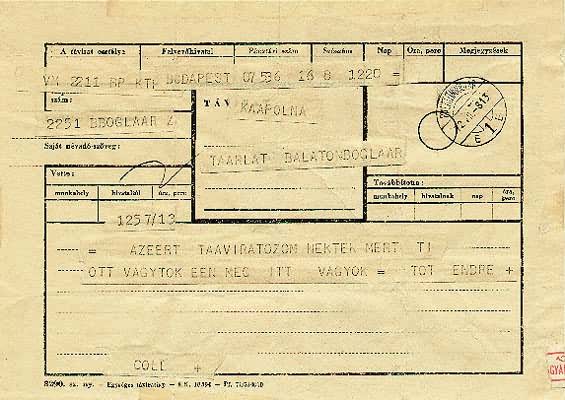 A távirat osztálya Felvevőhivatal Pénztári szám Szószám Nap Óra, perc Megjegyzések
VM 2211 BP KTH BUDAPEST 07536 16 8 1220 =
szám:
TÁV
KAAPOLNA
2251 BBOGLAAR Z
Saját névadó-szöveg:
TAARLAT BALATONBOGLAAR
Vette:
munkahely hivatalból óra, perc
Továbbította:
munkahely hivatalnak nap óra, perc
1257/13
= AZEERT TAAVIRATOZOM NEKTEK MERT TI
OTT VAGYTOK EEN MEG ITT VAGYOK = TOT ENDRE +
COLL +
8290. sz. ny. - Egységes távirat